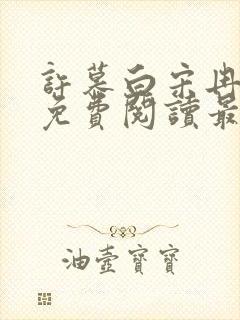 許慕白宋冉
免費閱讀最
油壺寶寶